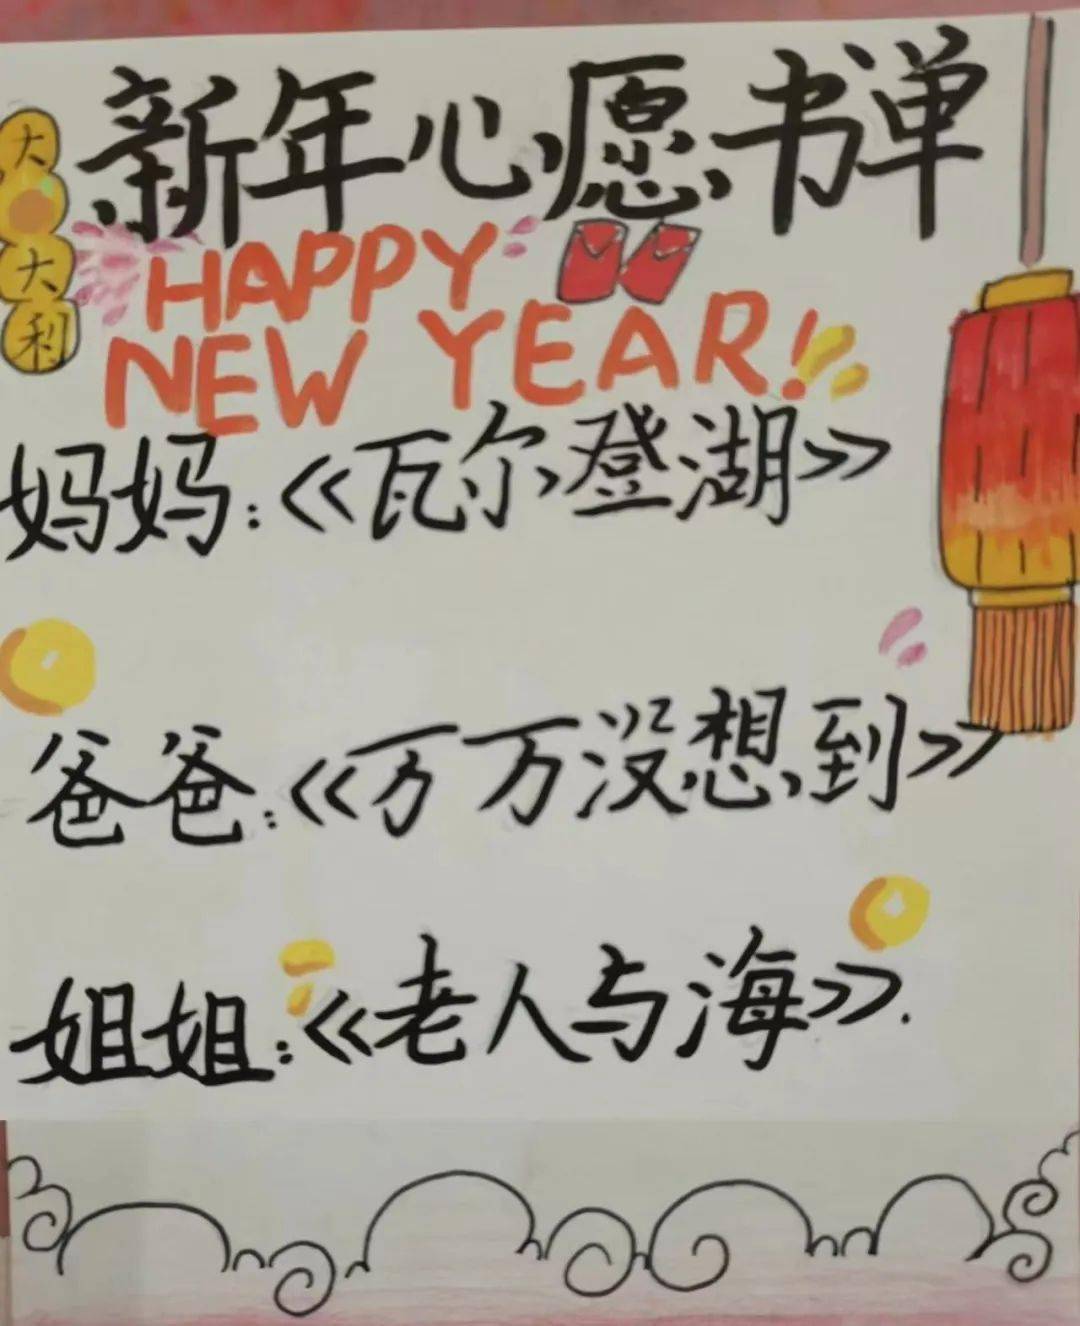 新年心愿书单
大大利
HAPPY
NEW YEAR!
妈妈:《瓦尔登湖》
爸爸:《万万没想到》
姐姐:《老人与海》.